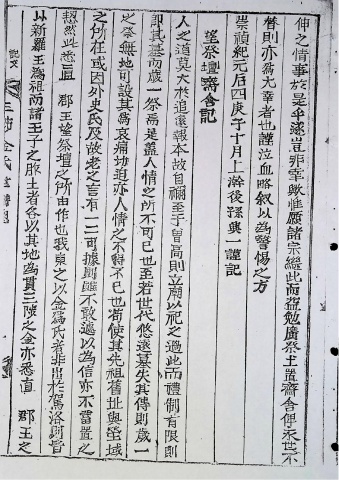 伸之情事於是乎遂豈非幸歟惟願諸宗繼此而益勉廣祭土置齋舍俾永世不
替則亦爲大幸者也謹泣血略叙以爲警惕之方
崇禎紀元后四庚子十月上澣後孫興一謹記
望祭壇齋舍記
人之道莫大於追遠報本故自禰至于曾高則立廟以祀之過此而禮制有限則
即其墓而歲一祭焉是盖人情之所不可已也至若世代悠遠墓失其傳則歲一
之祭無地可設其爲哀痛尤迫亦人情之不得不已也苟使其先祖舊址與塋域
之所在或因外史氏及故老之言有一二可據則雖不敢遽以爲信亦不當置之
恝然此悉直 郡王望祭壇之所由作也我東之以金爲氏者非出於駕洛則皆
以新羅王爲祖而諸王子之胙土者各以其地爲貫三陟之金亦悉直 郡王之
記文
三陟金氏世譜